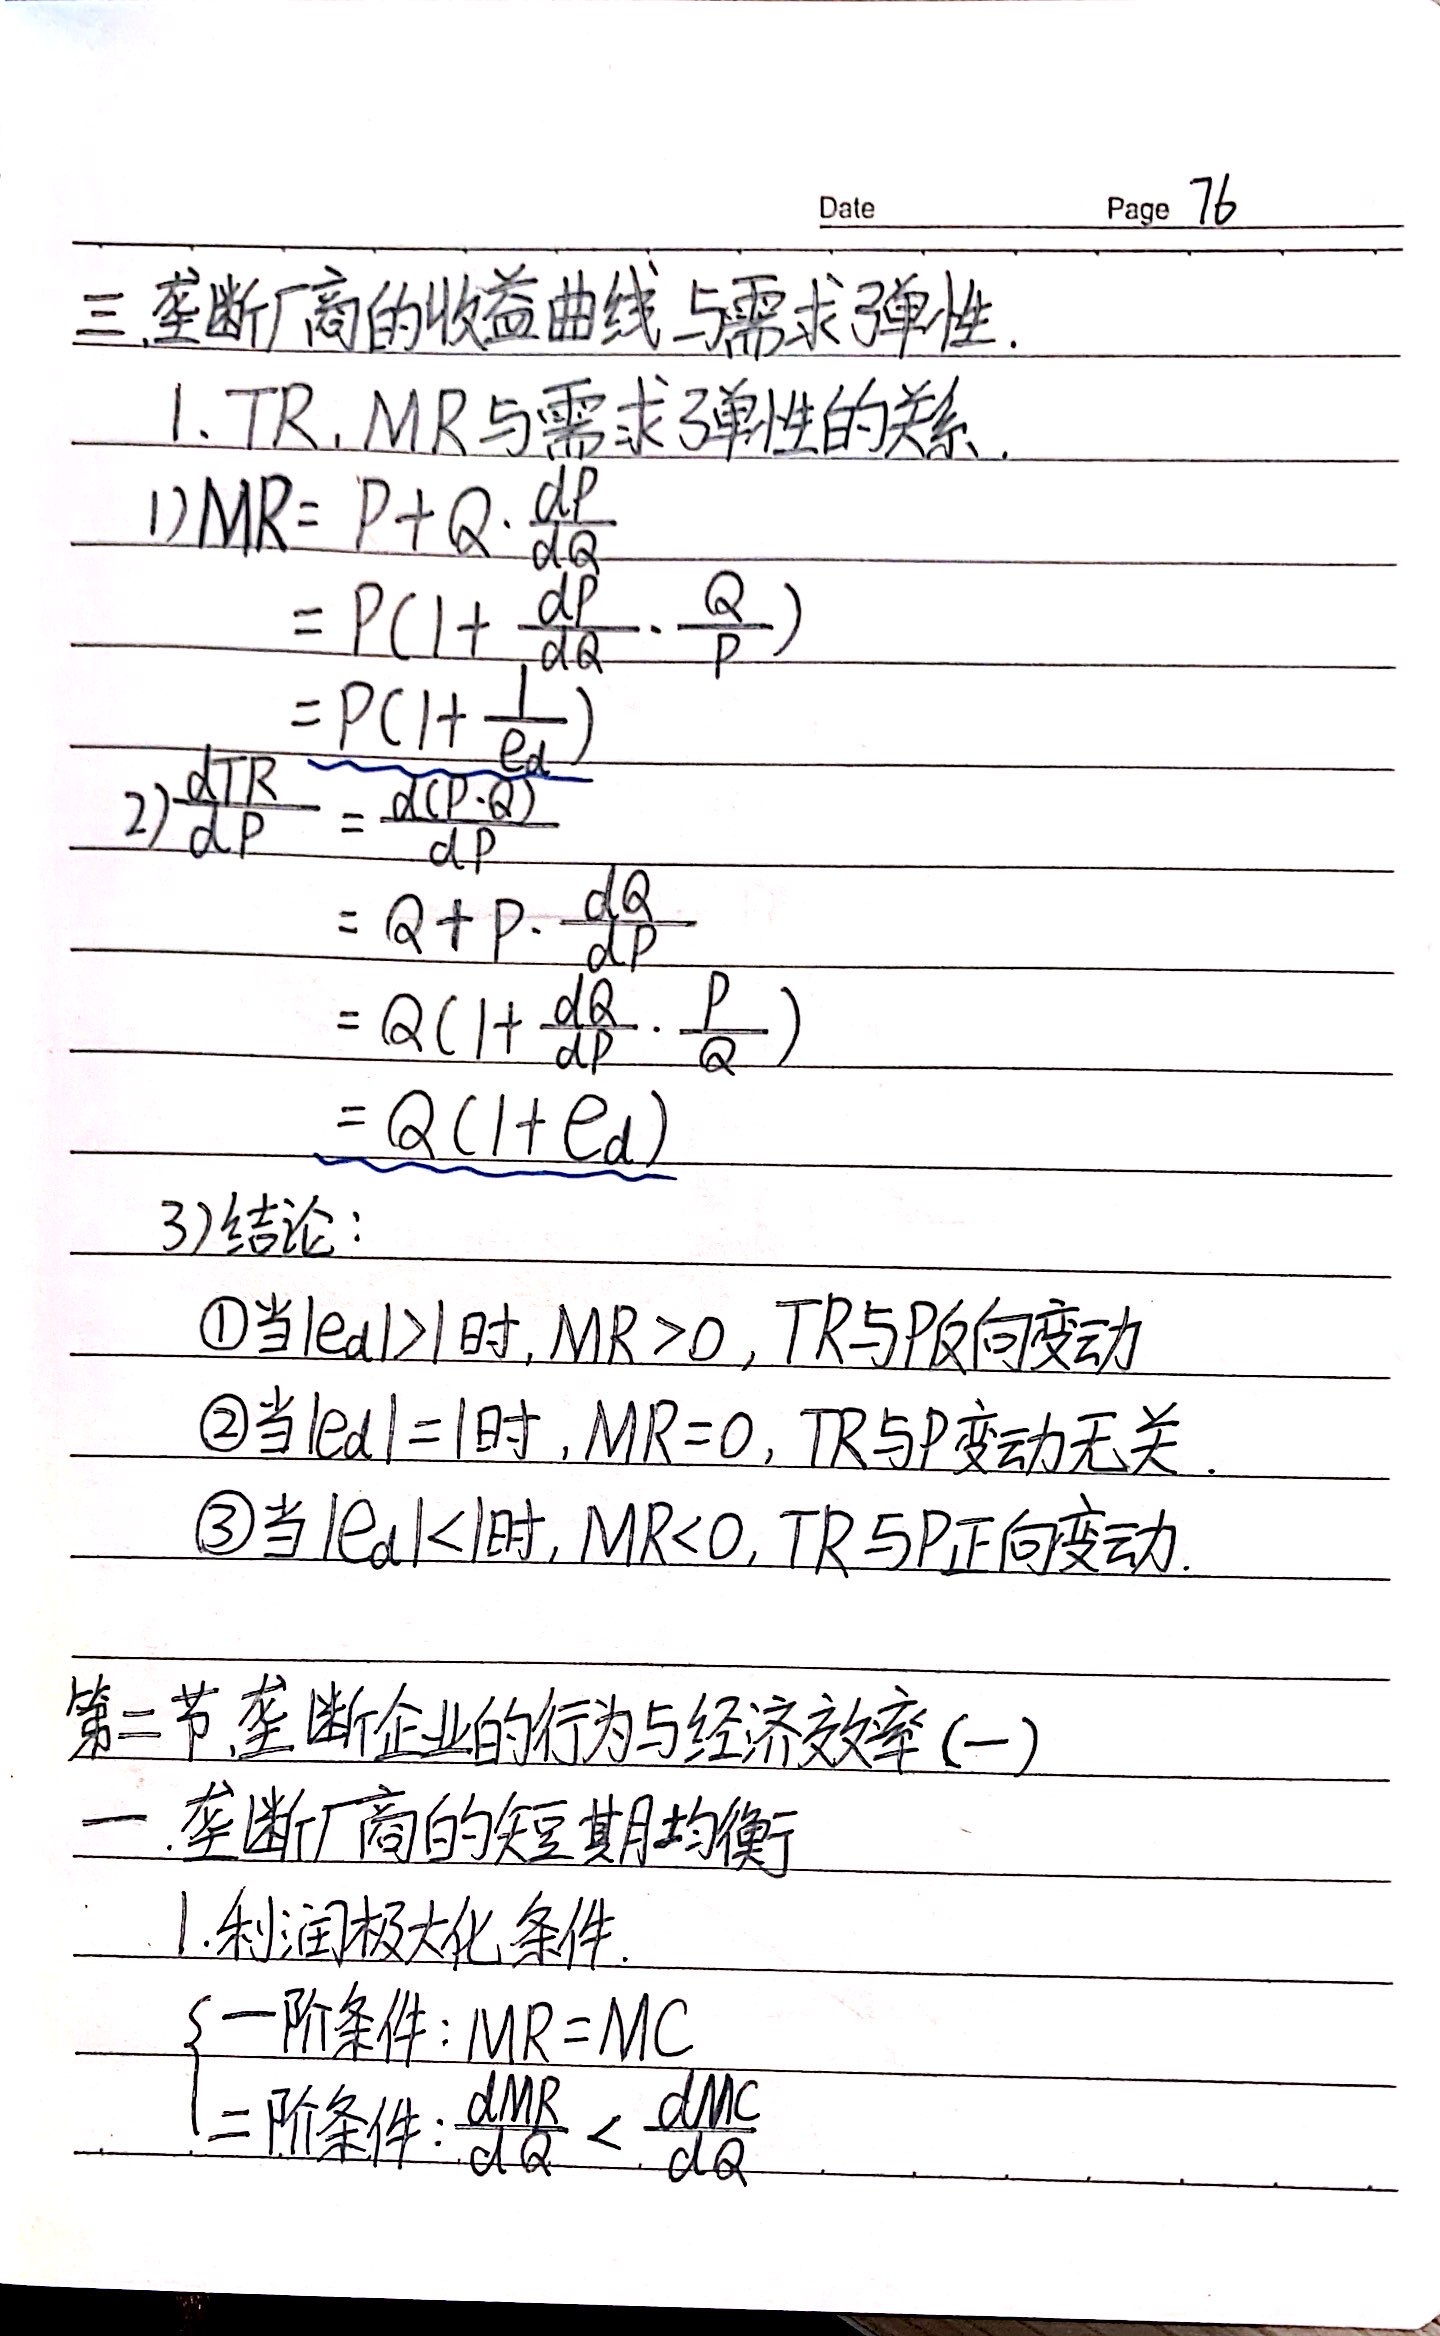 Date Page 76
三.垄断厂商的收益曲线与需求弹性.
1、TR,MR与需求弹性的关系.
1)MR= P+Q·dP/dQ
=P(1+dP/dQ·Q/P)
=P(1+1/ed)
2)dTR/dP=d(P·Q)/dP
=Q+P·dQ/dP
=Q(1+dQ/dP·P/Q)
=Q(1+ed)
3)结论:
①当|ed|>1时,MR>0,TR与P反向变动
②当|ed|=1时,MR=0,TR与P变动无关.
③当|ed|<1时,MR<0,TR与P正向变动.
第二节.垄断企业的行为与经济效率(一)
一.垄断厂商的短期均衡
1.利润极大化条件.
{一阶条件:MR=MC
二阶条件:dMR/dQ<dMC/dQ